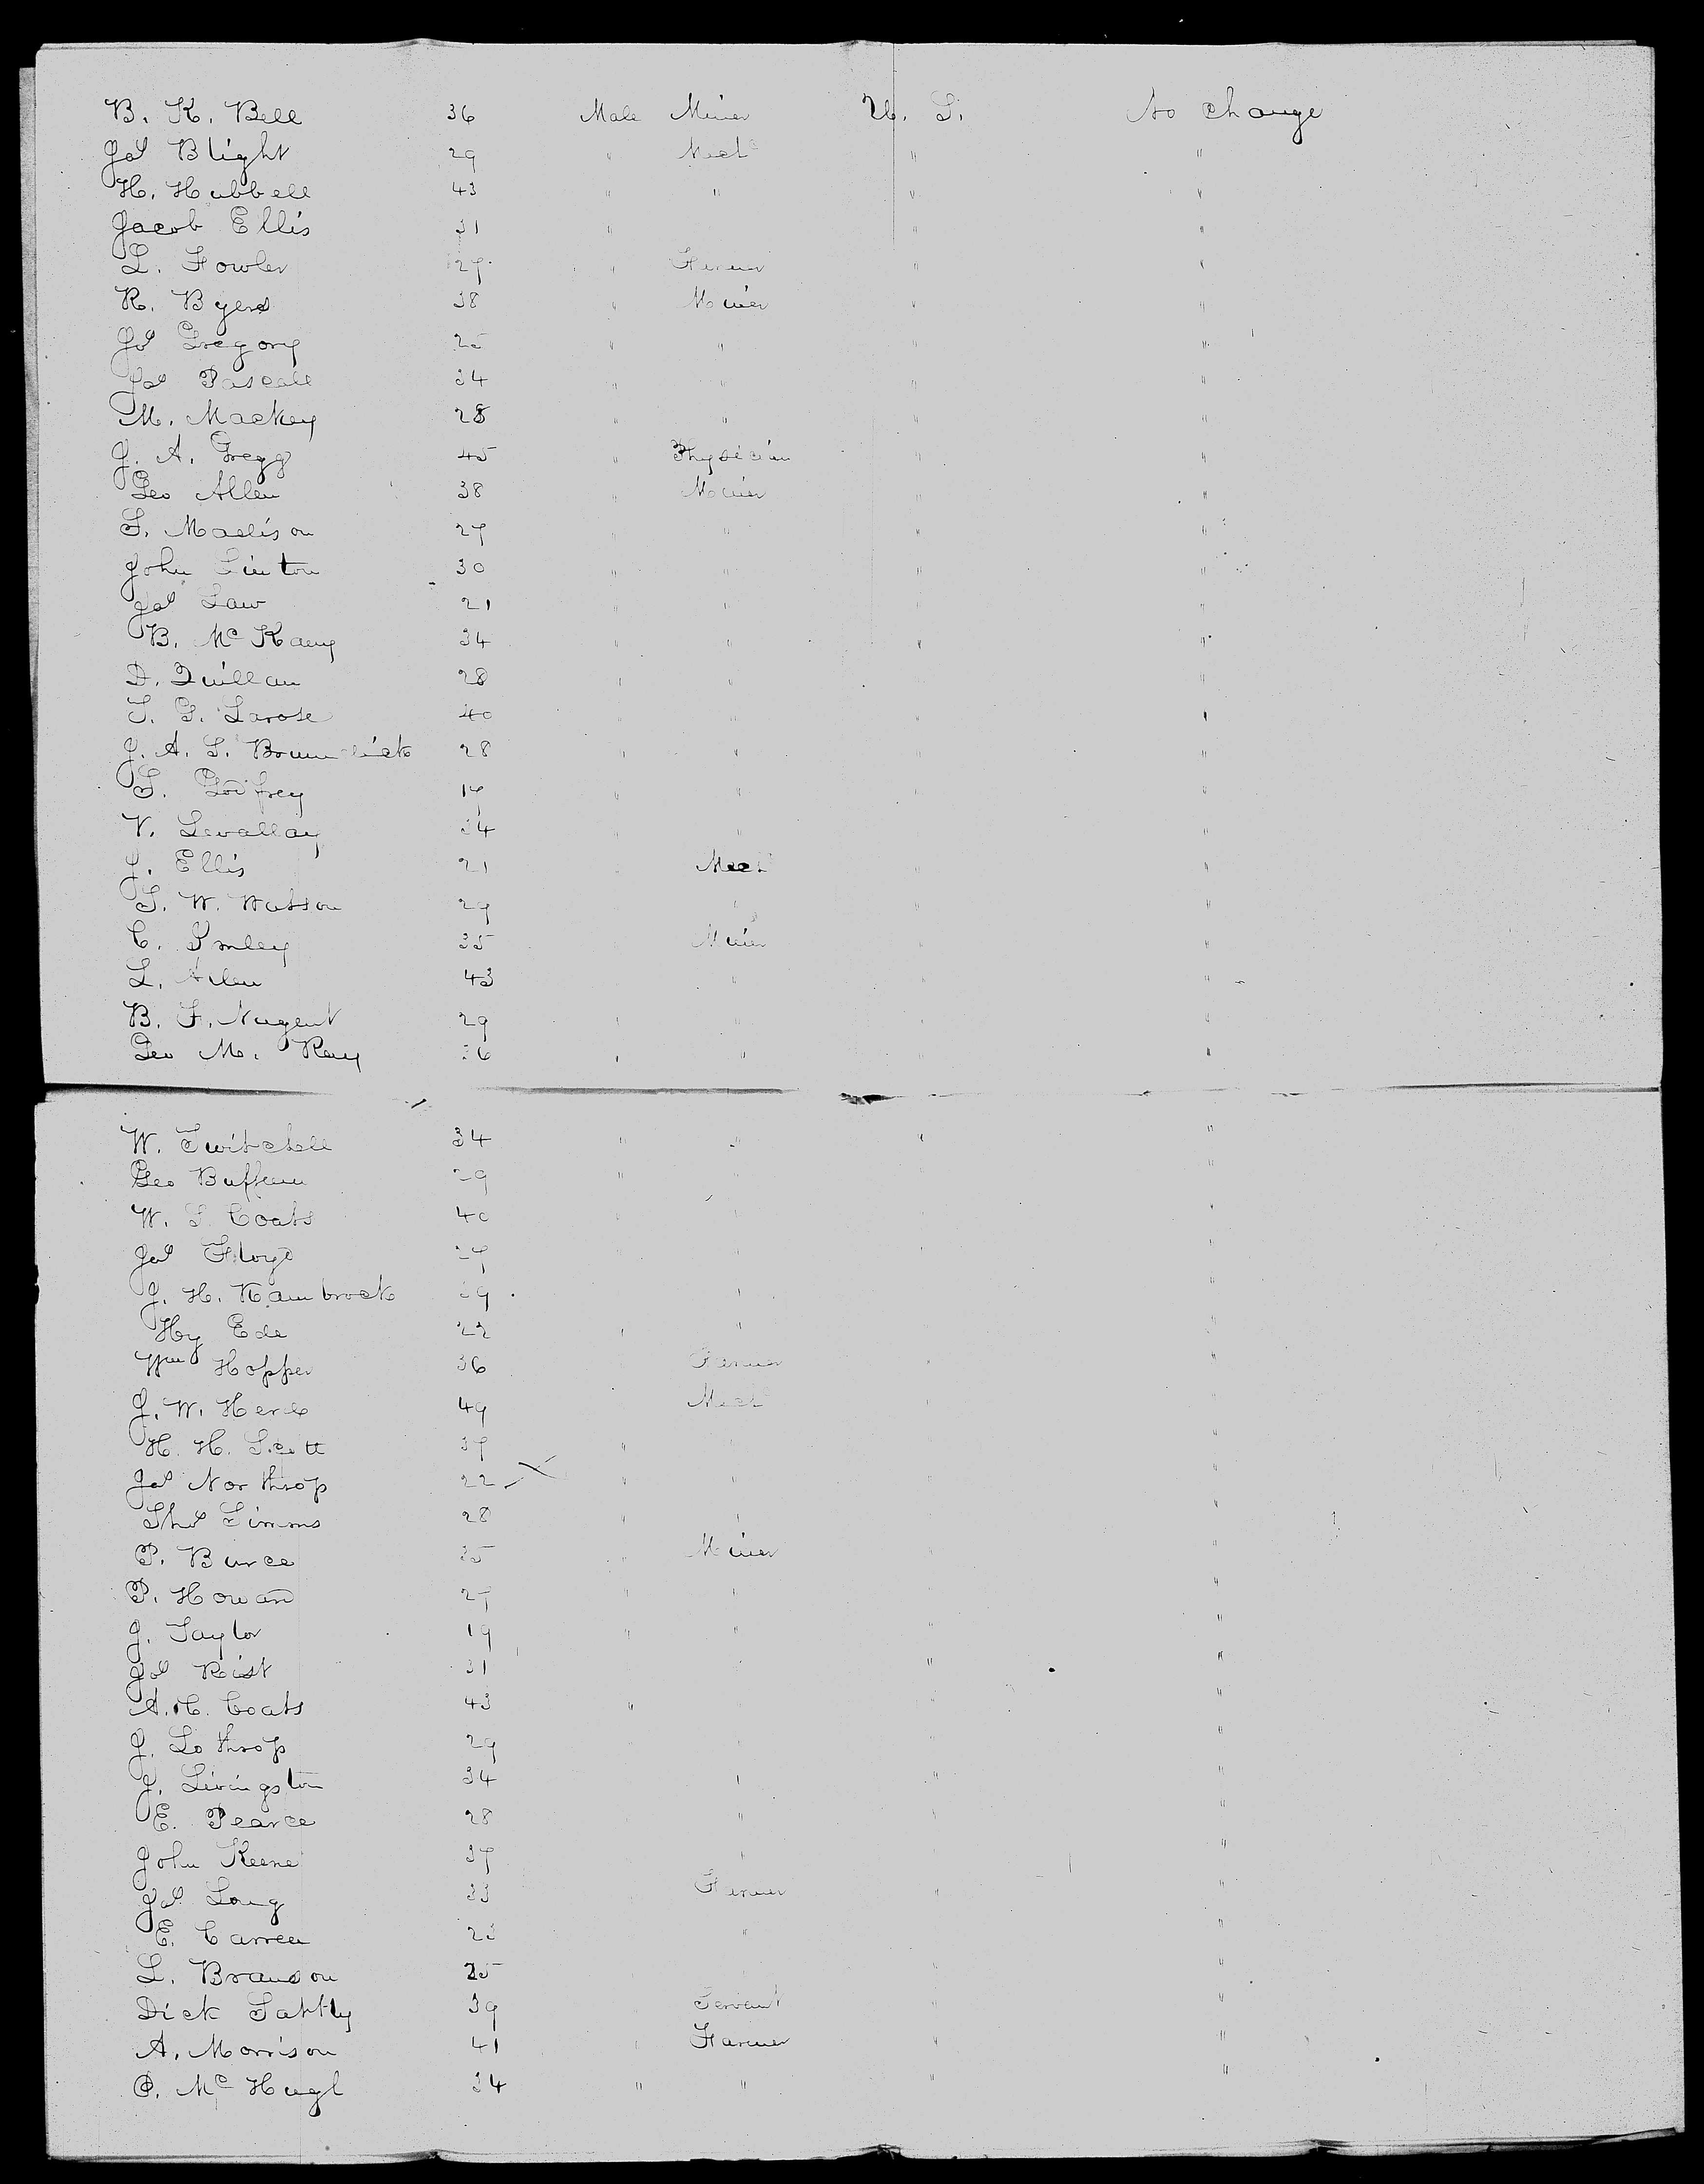 B. K. Bell 36 Male Miner U. S. No change
Jas Blight 29 " Mech " "
H. Hubbell 43 " " " "
Jacob Ellis 31 " " "
L. Fowler 27 " Farmer " "
R. Byers 38 " Miner " "
Jos Gregory 25 " " " "
Jas Pascall 34 " " " "
M. Mackey 28 " " " "
J. A. Gregg 45 " Physician " "
Geo Allen 38 " Miner " "
S. Madison 27 " " " "
John Linton 30 " " " "
Jas Law 21 " " " "
B. Mc Kany 34 " " " "
D. Quillan 28 " " "
T. G. Larose 40 " " " "
J. A. S. 28 " " " "
S. Godfrey 17 " " " "
V. Levallay 34 " " "
J. Ellis 21 " Mech " "
T. W. Watson 29 " " "
C. Smley 35 Miner " "
L. Allen 43 " " "
B. F. Nugent 29 " " " "
Geo M. Ray 36 " " " "
W. Twitchell 34 " " " "
Geo Buffum 29 " " "
W. S. Coats 40 " " "
Jas Floyd 27 " " "
J. H. Hambrock 39 " "
Hy Ede 22 " " "
Wm Hopper 36 Farmer " "
J. W. Herd 49 Mech " "
H. H. Scott 37 " "
Jas Northrop 22 " " "
Thos Simms 28 " " "
P. Burce 35 " Miner " "
P. Howard 27 " " "
J. Taylor 19 " " " "
Jos Rist 31 " "
A. H. Coats 43 " " "
J. Lothrop 29 " "
J. Livingston 34 " " "
E. Pearce 28 " " "
John Keene 37 " "
Jas Long 33 Farmer " "
E. Carren 23 " "
L. Branson 25 "
Dick Sattly 39 Servant " "
A. Morrison 41 " Farmer " "
P. Mc Hugh 34 " " " "